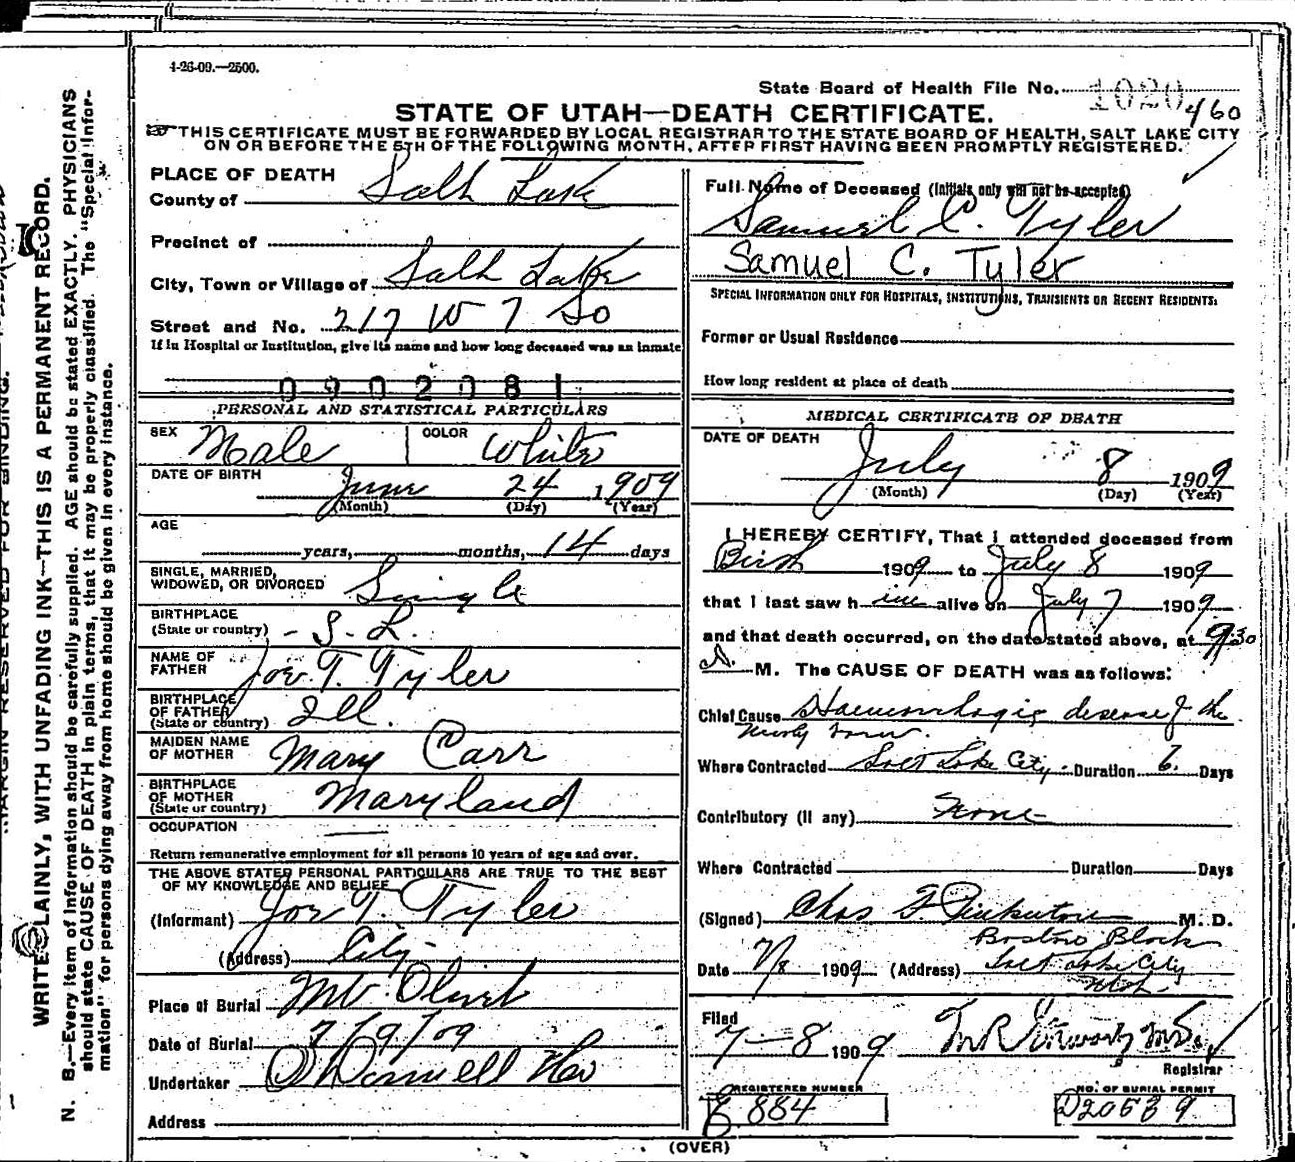 4-26-09.—2500.
State Board of Health File No. 1020
460
STATE OF UTAH—DEATH CERTIFICATE.
THIS CERTIFICATE MUST BE FORWARDED BY LOCAL REGISTRAR TO THE STATE BOARD OF HEALTH, SALT LAKE CITY
ON OR BEFORE THE 5TH OF THE FOLLOWING MONTH, AFTER FIRST HAVING BEEN PROMPTLY REGISTERED.
PLACE OF DEATH
County of Salt Lake
Precinct of
City, Town or Village of Salt Lake
Street and No. 217 W 7 So
If in Hospital or Institution, give its name and how long deceased was an inmate
0902081
PERSONAL AND STATISTICAL PARTICULARS
SEX Male COLOR White
DATE OF BIRTH June 24, 1909
(Month) (Day) (Year)
AGE
years, months, 14 days
SINGLE, MARRIED,
WIDOWED, OR DIVORCED Single
BIRTHPLACE
(State or country) - S. L.
NAME OF
FATHER Jos. T. Tyler
BIRTHPLACE
OF FATHER
(State or country) Ill.
MAIDEN NAME
OF MOTHER Mary Carr
BIRTHPLACE
OF MOTHER
(State or country) Maryland
OCCUPATION
Return remunerative employment for all persons 10 years of age and over.
THE ABOVE STATED PERSONAL PARTICULARS ARE TRUE TO THE BEST
OF MY KNOWLEDGE AND BELIEF
(Informant) Jos T. Tyler
(Address) City
Place of Burial Mt. Olivet
Date of Burial 7/9/09
Undertaker O'Donnell
Address
Full Name of Deceased (Initials only will not be accepted)
Samuel C. Tyler
Samuel C. Tyler
SPECIAL INFORMATION ONLY FOR HOSPITALS, INSTITUTIONS, TRANSIENTS OR RECENT RESIDENTS:
Former or Usual Residence
How long resident at place of death
MEDICAL CERTIFICATE OF DEATH
DATE OF DEATH
July 8 1909
(Month) (Day) (Year)
I HEREBY CERTIFY, That I attended deceased from
Birth 1909 to July 8 1909
that I last saw h im alive on July 7 1909
and that death occurred, on the date stated above, at 9:30
A. M. The CAUSE OF DEATH was as follows:
Chief Cause Haemorrhagic disease of the
newly born.
Where Contracted Salt Lake City. Duration 6. Days
Contributory (if any) None
Where Contracted Duration Days
(Signed) Chas G. Pinkerton M. D.
Boston Block
Date 7/8 1909 (Address) Salt Lake City
Utah
Filed
7—8 1909
Registrar
REGISTERED NUMBER
E 884
NO. OF BURIAL PERMIT
D20539
(OVER)
WRITE PLAINLY, WITH UNFADING INK—THIS IS A PERMANENT RECORD.
N. B.—Every item of information should be carefully supplied. AGE should be stated EXACTLY. PHYSICIANS
should state CAUSE OF DEATH in plain terms, that it may be properly classified. The "Special Infor-
mation" for persons dying away from home should be given in every instance.
MARGIN RESERVED FOR BINDING.